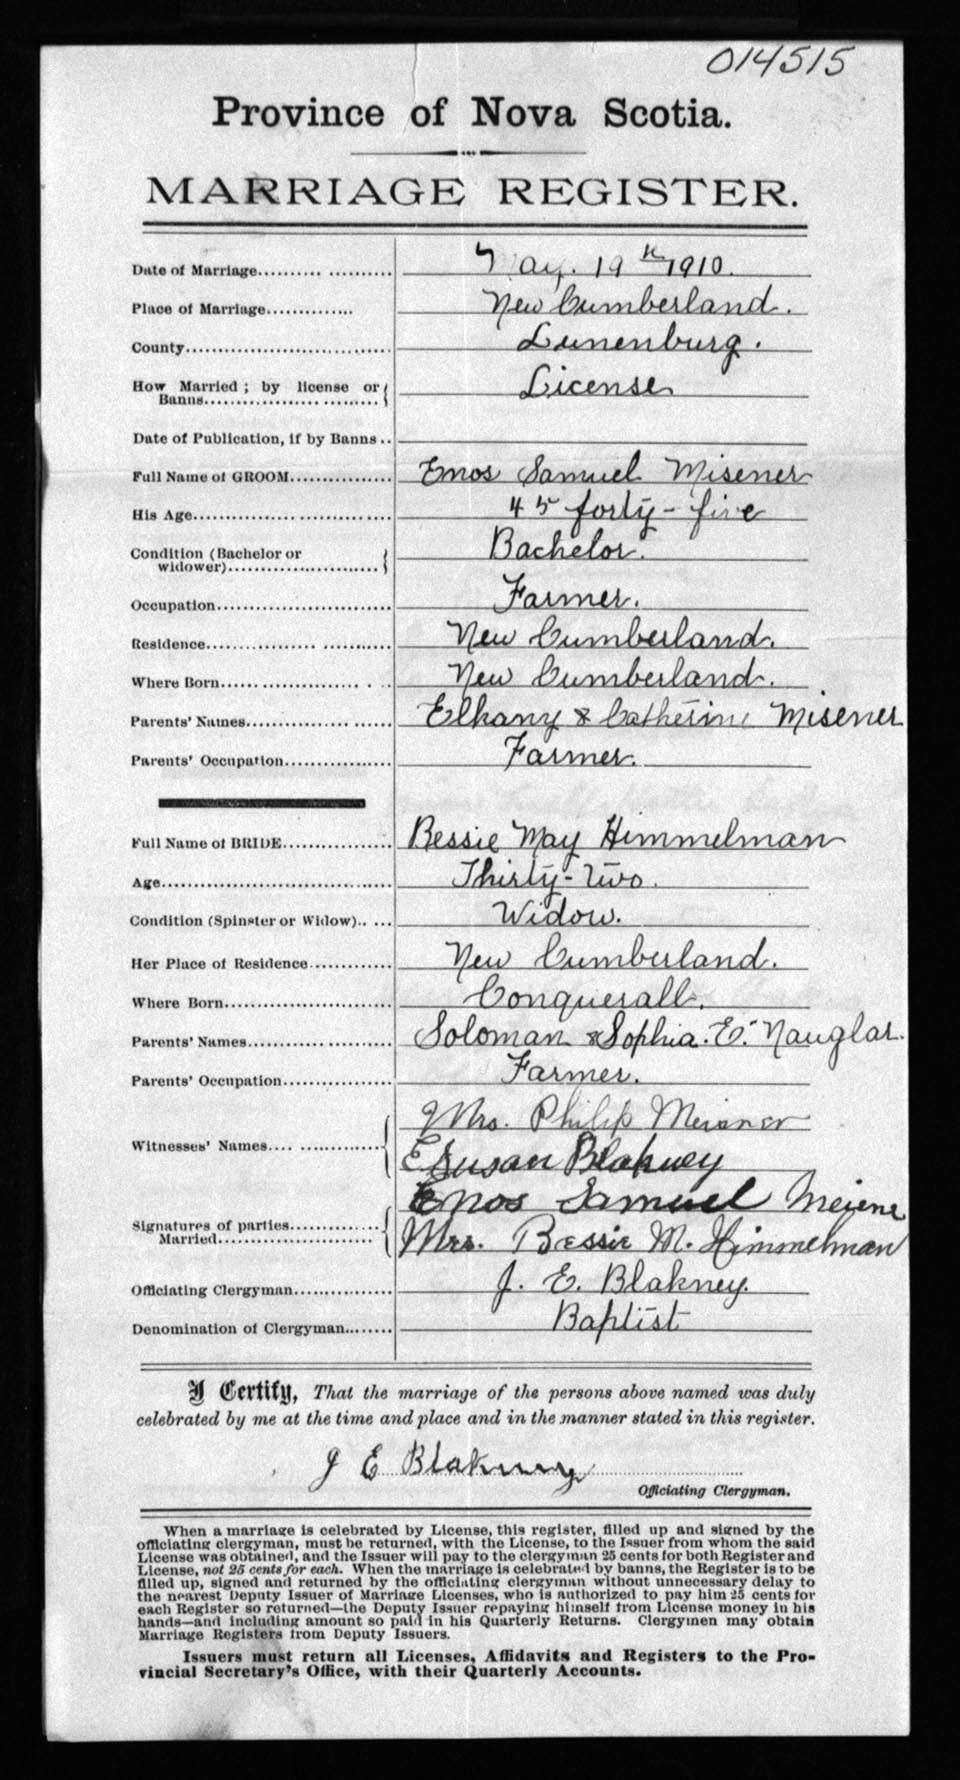 014515
Province of Nova Scotia.
MARRIAGE REGISTER.
Date of Marriage.......... May. 19th 1910.
Place of Marriage............. New Cumberland.
County.............................. Lunenburg.
How Married; by license or Banns.............................. License
Date of Publication, if by Banns..
Full Name of GROOM............... Enos Samuel Misener
His Age............................. 45 forty-five
Condition (Bachelor or widower)........................ Bachelor.
Occupation.......................... Farmer.
Residence........................... New Cumberland.
Where Born........................ New Cumberland.
Parents' Names...................... Elkany & Catherine Misener
Parents' Occupation................ Farmer.
Full Name of BRIDE................. Bessie May Himmelman
Age.................................... Thirty-two.
Condition (Spinster or Widow)..... Widow.
Her Place of Residence............ New Cumberland.
Where Born......................... Conquerall.
Parents' Names...................... Soloman & Sophia. E. Nauglar.
Parents' Occupation................ Farmer.
Witnesses' Names.................. Mrs. Philip Meisner
E Susan Blakney
Signatures of parties Married.............................. Enos Samuel
Mrs. Bessie M. Himmelman
Officiating Clergyman.............. J. E. Blakney.
Denomination of Clergyman....... Baptist
I Certify, That the marriage of the persons above named was duly
celebrated by me at the time and place and in the manner stated in this register.
J E Blakney
Officiating Clergyman.
When a marriage is celebrated by License, this register, filled up and signed by the
officiating clergyman, must be returned, with the License, to the Issuer from whom the said
License was obtained, and the Issuer will pay to the clergyman 25 cents for both Register and
License, not 25 cents for each. When the marriage is celebrated by banns, the Register is to be
filled up, signed and returned by the officiating clergyman without unnecessary delay to
the nearest Deputy Issuer of Marriage Licenses, who is authorized to pay him 25 cents for
each Register so returned—the Deputy Issuer repaying himself from License money in his
hands—and including amount so paid in his Quarterly Returns. Clergymen may obtain
Marriage Registers from Deputy Issuers.
Issuers must return all Licenses, Affidavits and Registers to the Pro-
vincial Secretary's Office, with their Quarterly Accounts.